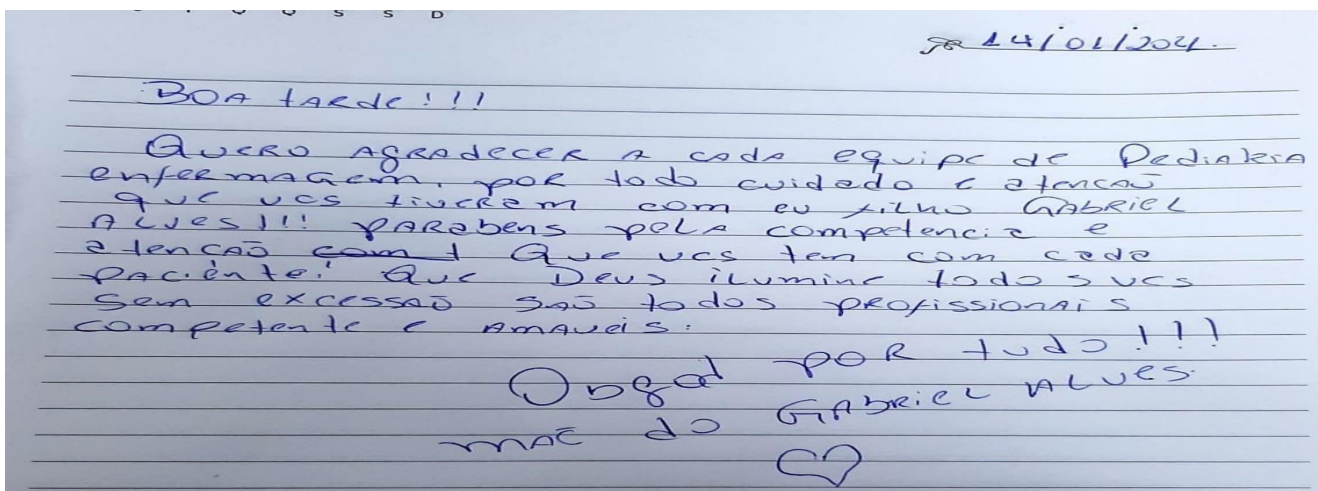 S S D
14/01/2021.
BOA tARde!!!
QUERO AgRAdeceR A cada equipe de Pediatria
enfermagem, poR todo cuidado e atencaõ
que vcs tiveRam com eu filho GABRIEL
ALVES!!! PARabens peLA competencia e
atençaõ com Que vcs tem com cada
PACiente! Que Deus iLumine todos vcs
Sem excessaõ saõ todos pROfissionAis
competente e AMAveis.
Obgad poR tudo!!!
mAE do GABRiel ALves.